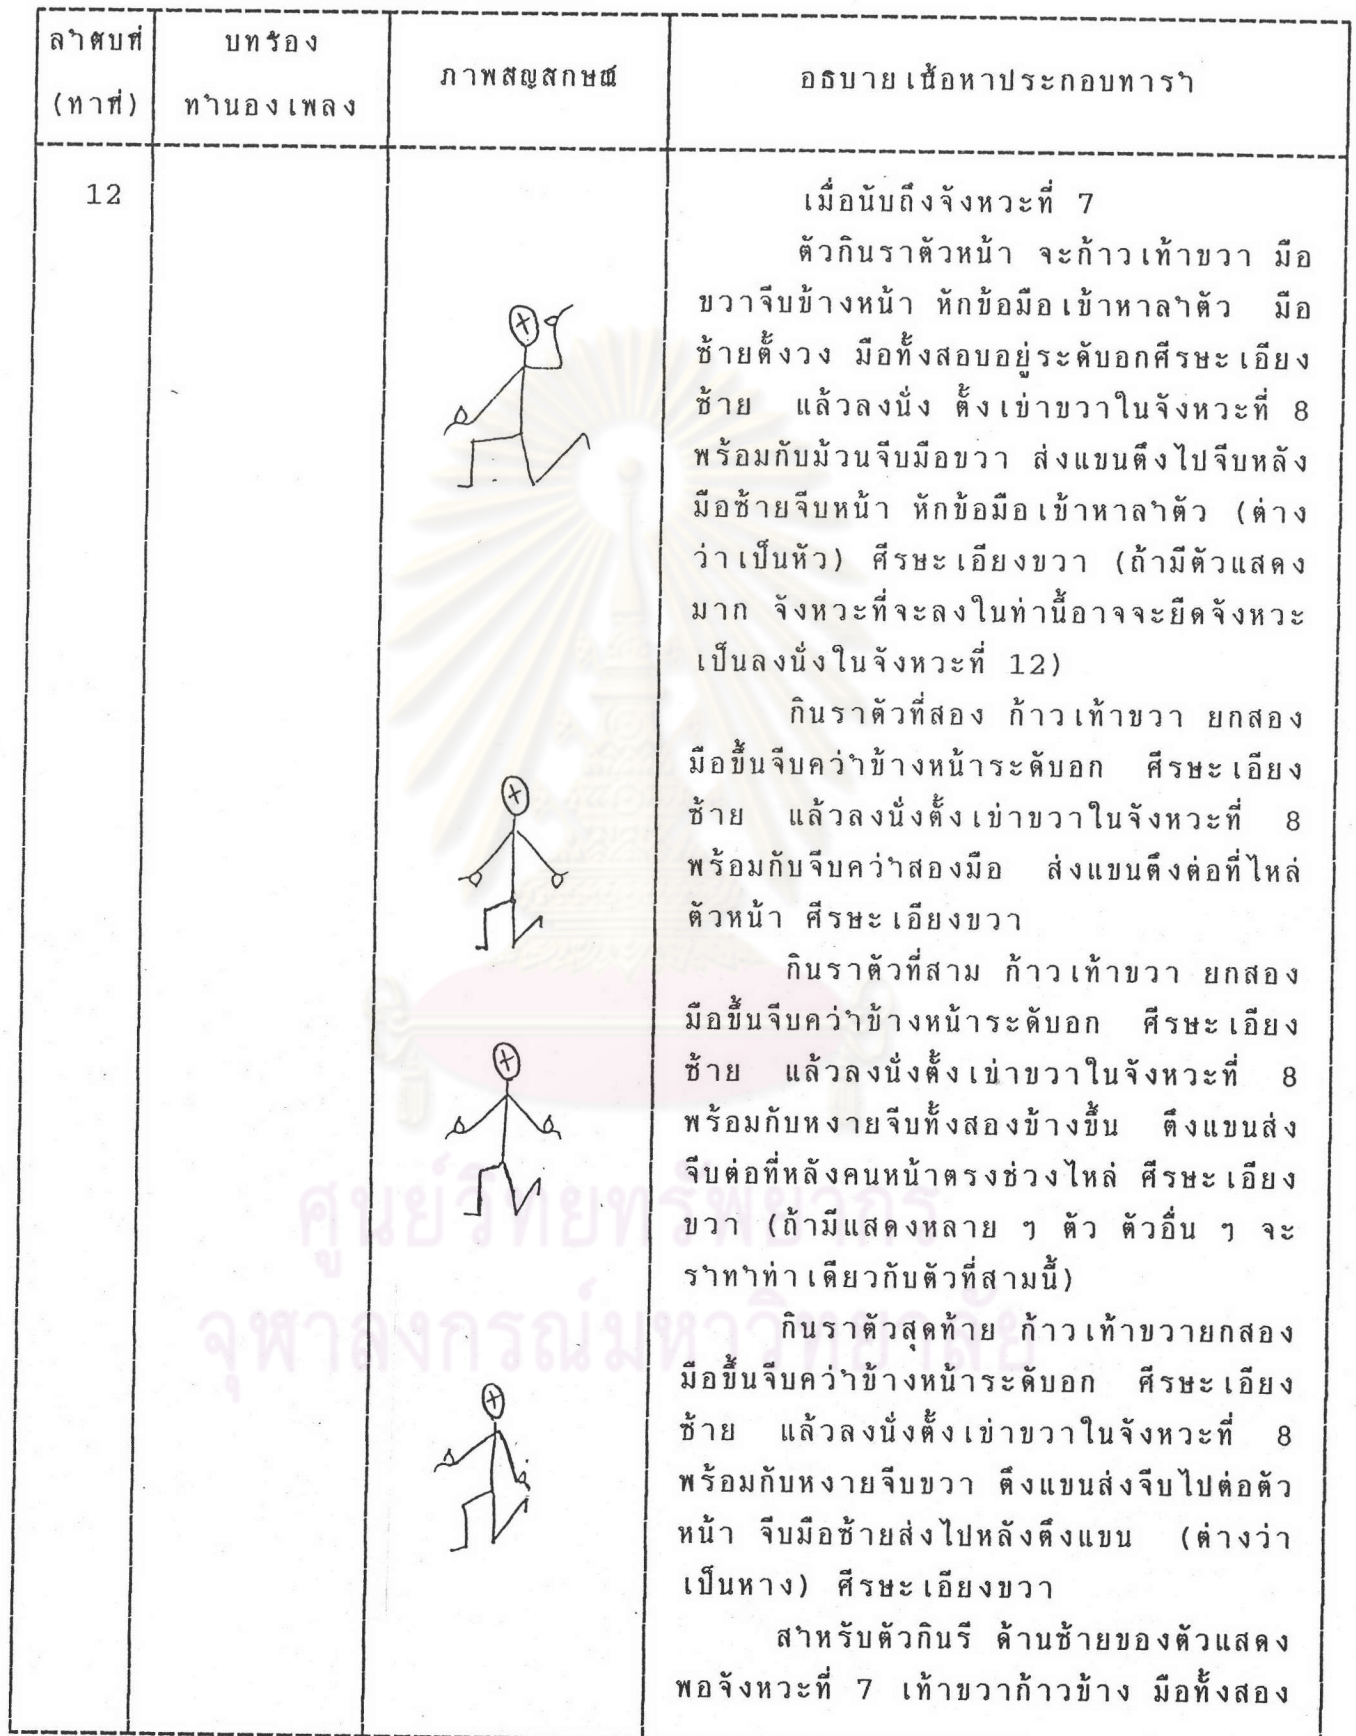 ลำดับที่
(ท่าที่)
บทร้อง
ทำนองเพลง
ภาพสัญลักษณ์
อธิบายเนื้อหาประกอบท่ารำ
12
เมื่อนับถึงจังหวะที่ 7
ตัวกินราตัวหน้า จะก้าวเท้าขวา มือ
ขวาจีบข้างหน้า หักข้อมือเข้าหาลำตัว มือ
ซ้ายตั้งวง มือทั้งสอบอยู่ระดับอกศีรษะเอียง
ซ้าย แล้วลงนั่ง ตั้งเข่าขวาในจังหวะที่ 8
พร้อมกับม้วนจีบมือขวา ส่งแขนตึงไปจีบหลัง
มือซ้ายจีบหน้า หักข้อมือเข้าหาลำตัว (ต่าง
ว่าเป็นหัว) ศีรษะเอียงขวา (ถ้ามีตัวแสดง
มาก จังหวะที่จะลงในท่านี้อาจจะยืดจังหวะ
เป็นลงนั่งในจังหวะที่ 12)
กินราตัวที่สอง ก้าวเท้าขวา ยกสอง
มือขึ้นจีบคว่ำข้างหน้าระดับอก ศีรษะเอียง
ซ้าย แล้วลงนั่งตั้งเข่าขวาในจังหวะที่ 8
พร้อมกับจีบคว่ำสองมือ ส่งแขนตึงต่อที่ไหล่
ตัวหน้า ศีรษะเอียงขวา
กินราตัวที่สาม ก้าวเท้าขวา ยกสอง
มือขึ้นจีบคว่ำข้างหน้าระดับอก ศีรษะเอียง
ซ้าย แล้วลงนั่งตั้งเข่าขวาในจังหวะที่ 8
พร้อมกับหงายจีบทั้งสองข้างขึ้น ตึงแขนส่ง
จีบต่อที่หลังคนหน้าตรงช่วงไหล่ ศีรษะเอียง
ขวา (ถ้ามีแสดงหลาย ๆ ตัว ตัวอื่น ๆ จะ
รำทำท่าเดียวกับตัวที่สามนี้)
กินราตัวสุดท้าย ก้าวเท้าขวายกสอง
มือขึ้นจีบคว่ำข้างหน้าระดับอก ศีรษะเอียง
ซ้าย แล้วลงนั่งตั้งเข่าขวาในจังหวะที่ 8
พร้อมกับหงายจีบขวา ตึงแขนส่งจีบไปต่อตัว
หน้า จีบมือซ้ายส่งไปหลังตึงแขน (ต่างว่า
เป็นหาง) ศีรษะเอียงขวา
สำหรับตัวกินรี ด้านซ้ายของตัวแสดง
พอจังหวะที่ 7 เท้าขวาก้าวข้าง มือทั้งสอง
ศูนย์วิทยทรัพยากร
จุฬาลงกรณ์มหาวิทยาลัย